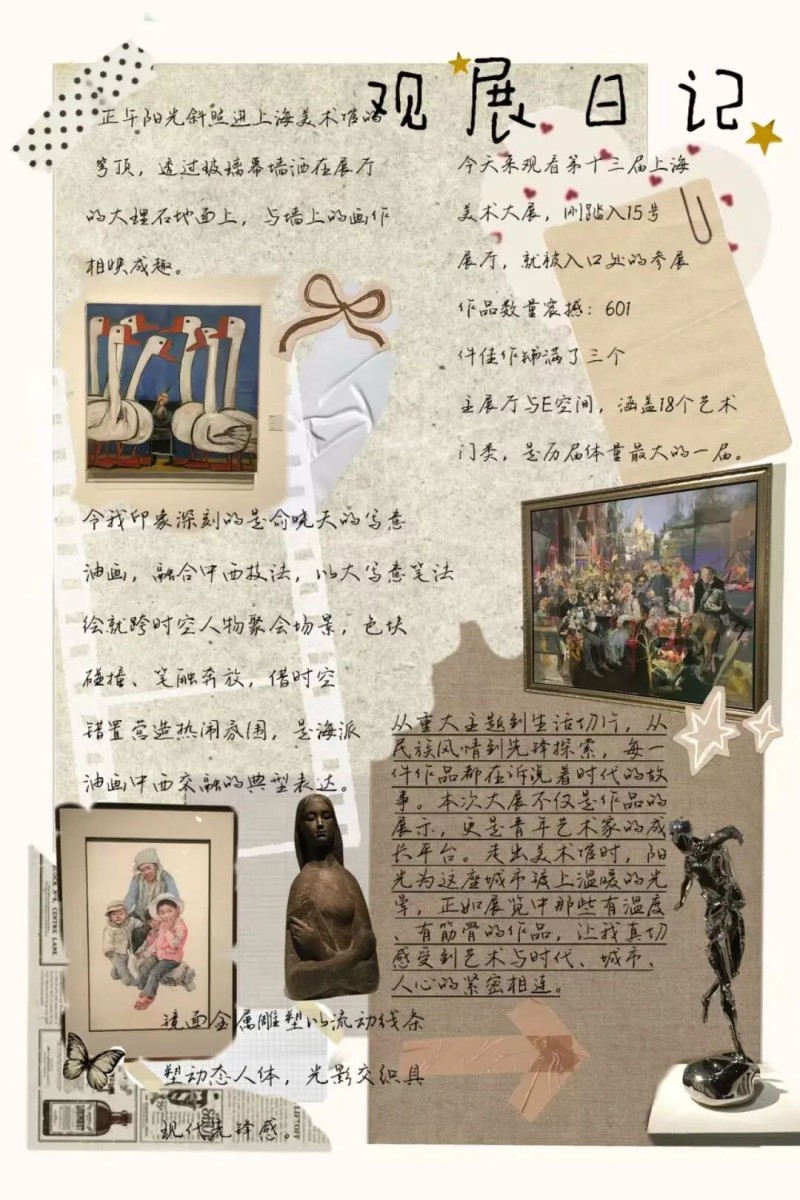 观展日记
正午阳光斜照进上海美术馆的
穹顶，透过玻璃幕墙洒在展厅
的大理石地面上，与墙上的画作
相映成趣。
今天来观看第十三届上海
美术大展，刚踏入15号
展厅，就被入口处的参展
作品数量震撼：601
件佳作铺满了三个
主展厅与E空间，涵盖18个艺术
门类，是历届体量最大的一届。
令我印象深刻的是俞晓夫的写意
油画，融合中西技法，以大写意笔法
绘就跨时空人物聚会场景，色块
碰撞、笔触奔放，借时空
错置营造热闹氛围，是海派
油画中西交融的典型表达。
从重大主题到生活切片，从
民族风情到先锋探索，每一
件作品都在诉说着时代的故
事。本次大展不仅是作品的
展示，更是青年艺术家的成
长平台。走出美术馆时，阳
光为这座城市镀上温暖的光
晕，正如展览中那些有温度
、有筋骨的作品，让我真切
感受到艺术与时代、城市、
人心的紧密相连。
镜面金属雕塑以流动线条
塑动态人体，光影交织具
现代先锋感。